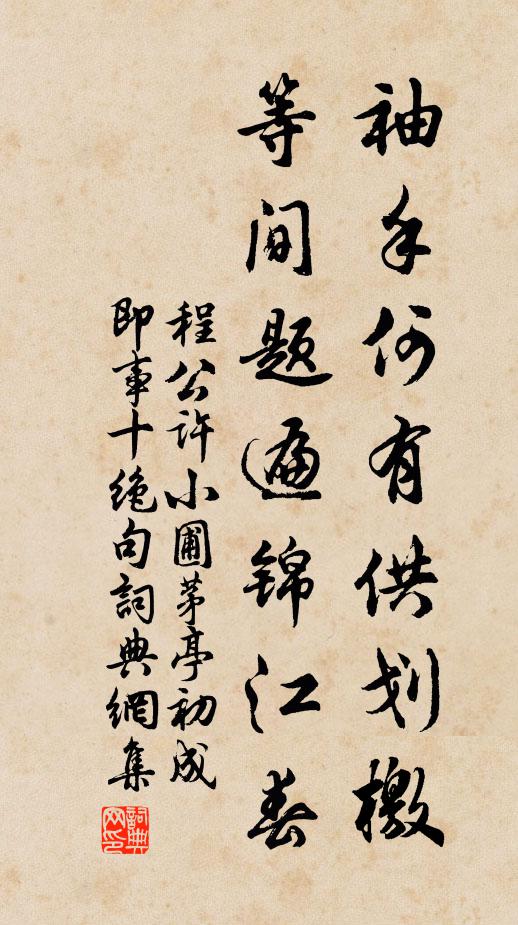 袖手何有供划檄
等间题遍锦江春
程公许小圃茅亭初成
即事十绝句詞典網集
詞典网印